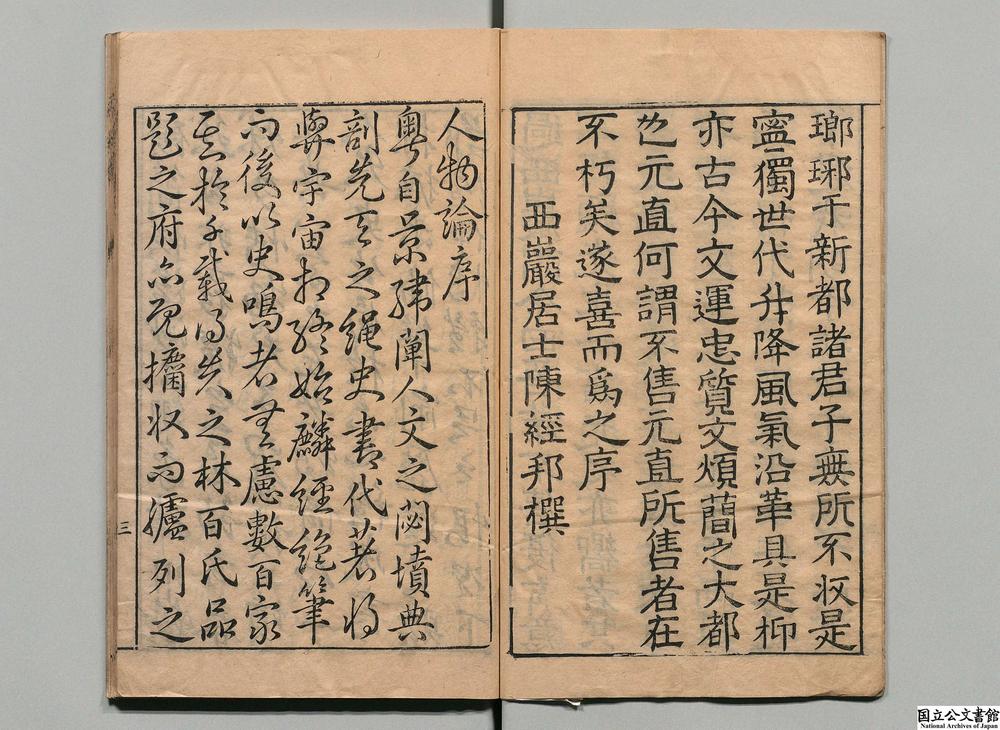 瑯琊于新都諸君子無所不収是
寧獨世代升降風氣沿革具是抑
亦古今文運忠質文煩蕳之大都
也元直何謂不售元直所售者在
不朽矣遂喜而爲之序
西巖居士陳經邦撰
人物論序
粵自景緯闡人文之閟墳典
剖先天之繩史書代著將
與宇宙相終始麟經絕筆
而後以史鳴者無慮數百家
其於千載得失之林百氏品
題之府亦既攟收而臚列之
三
国立公文書館
National Archives of Japan